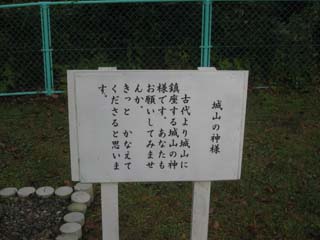 城山の神様
古代より城山に
鎮座する城山の神
様です。あなたも
お願いしてみませ
んか。
きっと かなえて
くださると思いま
す。